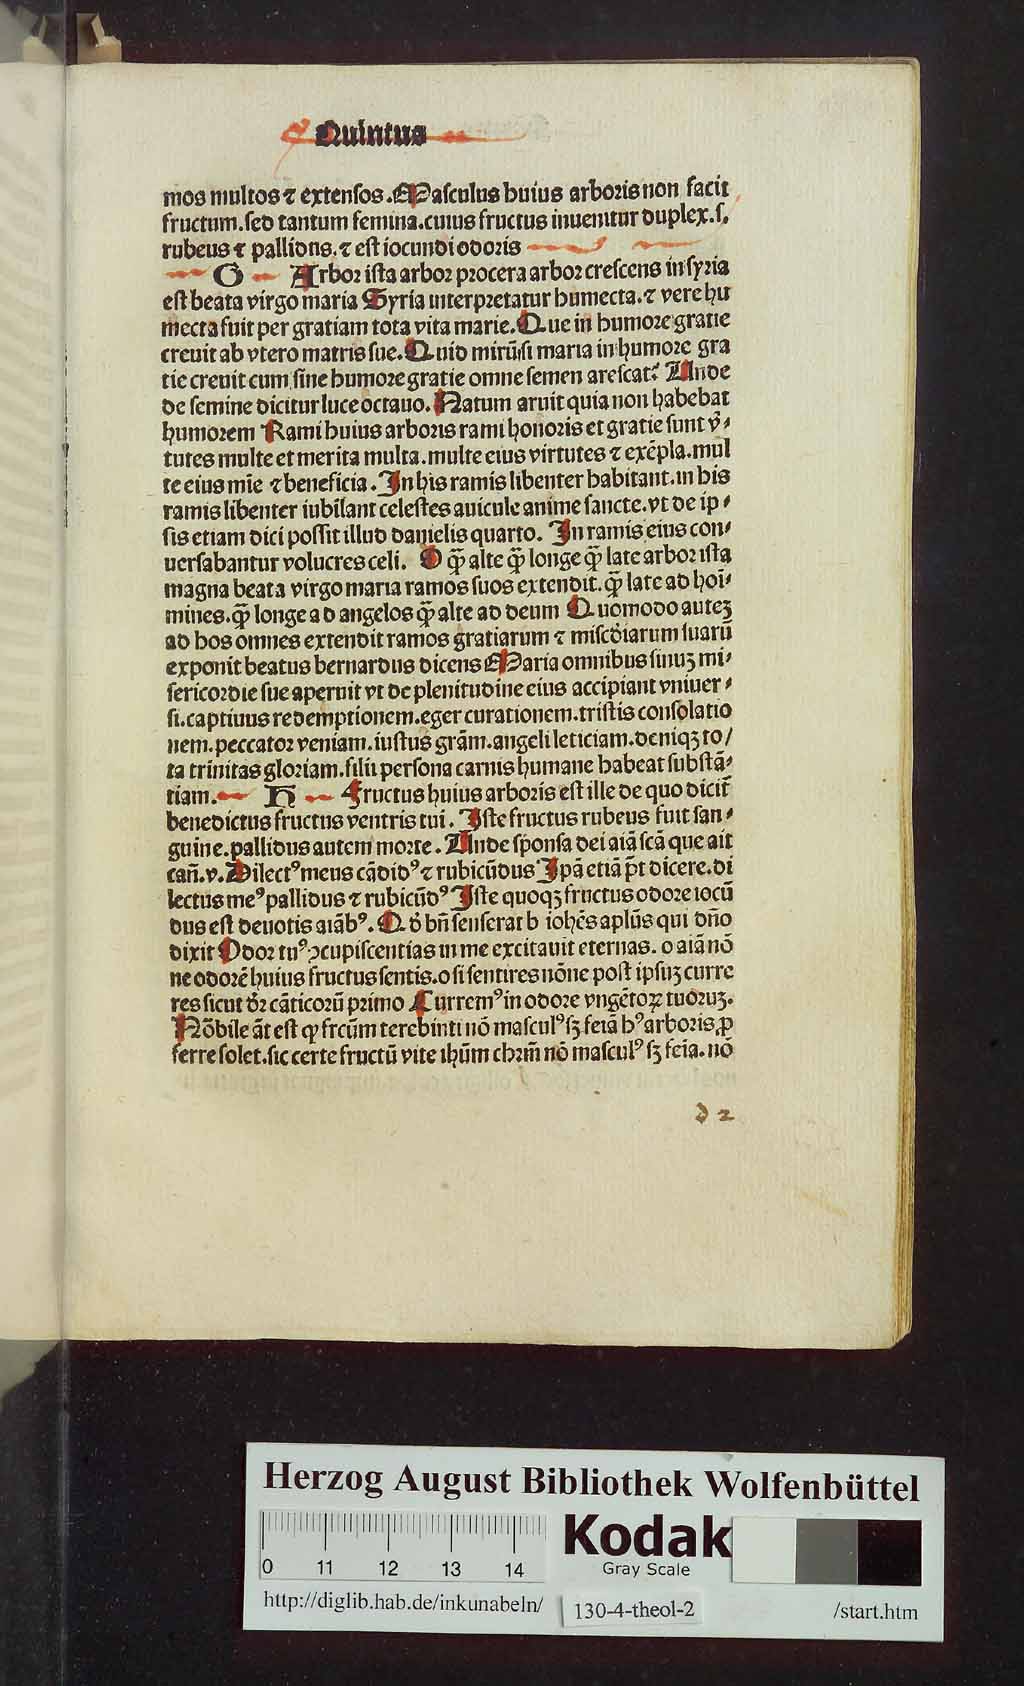 Quintus
mos multos ⁊ extensos. Masculus huius arboris non facit
fructum. sed tantum femina. cuius fructus inuenitur duplex. s.
rubeus ⁊ pallidus. ⁊ est iocundi odoris
G Arbor ista arbor procera arbor crescens in syria
est beata virgo maria Syria interpretatur humecta. ⁊ vere hu
mecta fuit per gratiam tota vita marie. Que in humore gratie
creuit ab vtero matris sue. Quid mirū si maria in humore gra
tie creuit cum sine humore gratie omne semen arescat? Unde
de semine dicitur luce octauo. Natum aruit quia non habebat
humorem Rami huius arboris rami honoris et gratie sunt v̄r⸗
tutes multe et merita multa. multe eius virtutes ⁊ exēpla. mul
te eius mīe ⁊ beneficia. In his ramis libenter habitant. in his
ramis libenter iubilant celestes auicule anime sancte. vt de ip⸗
sis etiam dici possit illud danielis quarto. In ramis eius con⸗
uersabantur volucres celi. O q̄ꝫ alte q̄ꝫ longe q̄ꝫ late arbor ista
magna beata virgo maria ramos suos extendit. q̄ꝫ late ad hoī⸗
mines. q̄ꝫ longe ad angelos q̄ꝫ alte ad deum Quomodo auteꝫ
ad hos omnes extendit ramos gratiarum ⁊ miscd̄iarum suarū
exponit beatus bernardus dicens Maria omnibus sinuꝫ mi⸗
sericordie sue aperuit vt de plenitudine eius accipiant vniuer⸗
si. captiuus redemptionem. eger curationem. tristis consolatio
nem. peccator veniam. iustus grām. angeli leticiam. deniqꝫ to/
ta trinitas gloriam. filii persona carnis humane habeat substā⸗
tiam. H Fructus huius arboris est ille de quo dicit̄
benedictus fructus ventris tui. Iste fructus rubeus fuit san⸗
guine. pallidus autem morte. Unde sponsa dei aiā scā que ait
cañ. v. Dilectꝰ meus cādidꝰ ⁊ rubicūdus Ipā etiā p̄t dicere. di
lectus meꝰ pallidus ⁊ rubicūdꝰ Iste quoqꝫ fructus odore iocū
dus est deuotis aīabꝰ. Qd̄ bñ senserat b iohēs aplūs qui dño
dixit Odor tuꝰ ↄcupiscentias in me excitauit eternas. o aiā nō
ne odorē huius fructus sentis. o si sentires nōne post ipsuꝫ curre
res sicut dr̄ cāticorū primo Curremꝰ in odore vngētoꝝ tuoruꝫ.
Nōbile āt est qꝙ frcūm terebinti nō masculꝰ sꝫ feīa hꝰ arboris ꝓ
ferre solet. sic certe fructū vite ihūm chrm̄ nō masculꝰ sꝫ feīa. nō
d 2
Herzog August Bibliothek Wolfenbüttel
Kodak
Gray Scale
0 11 12 13 14
http://diglib.hab.de/inkunabeln/ 130-4-theol-2 /start.htm